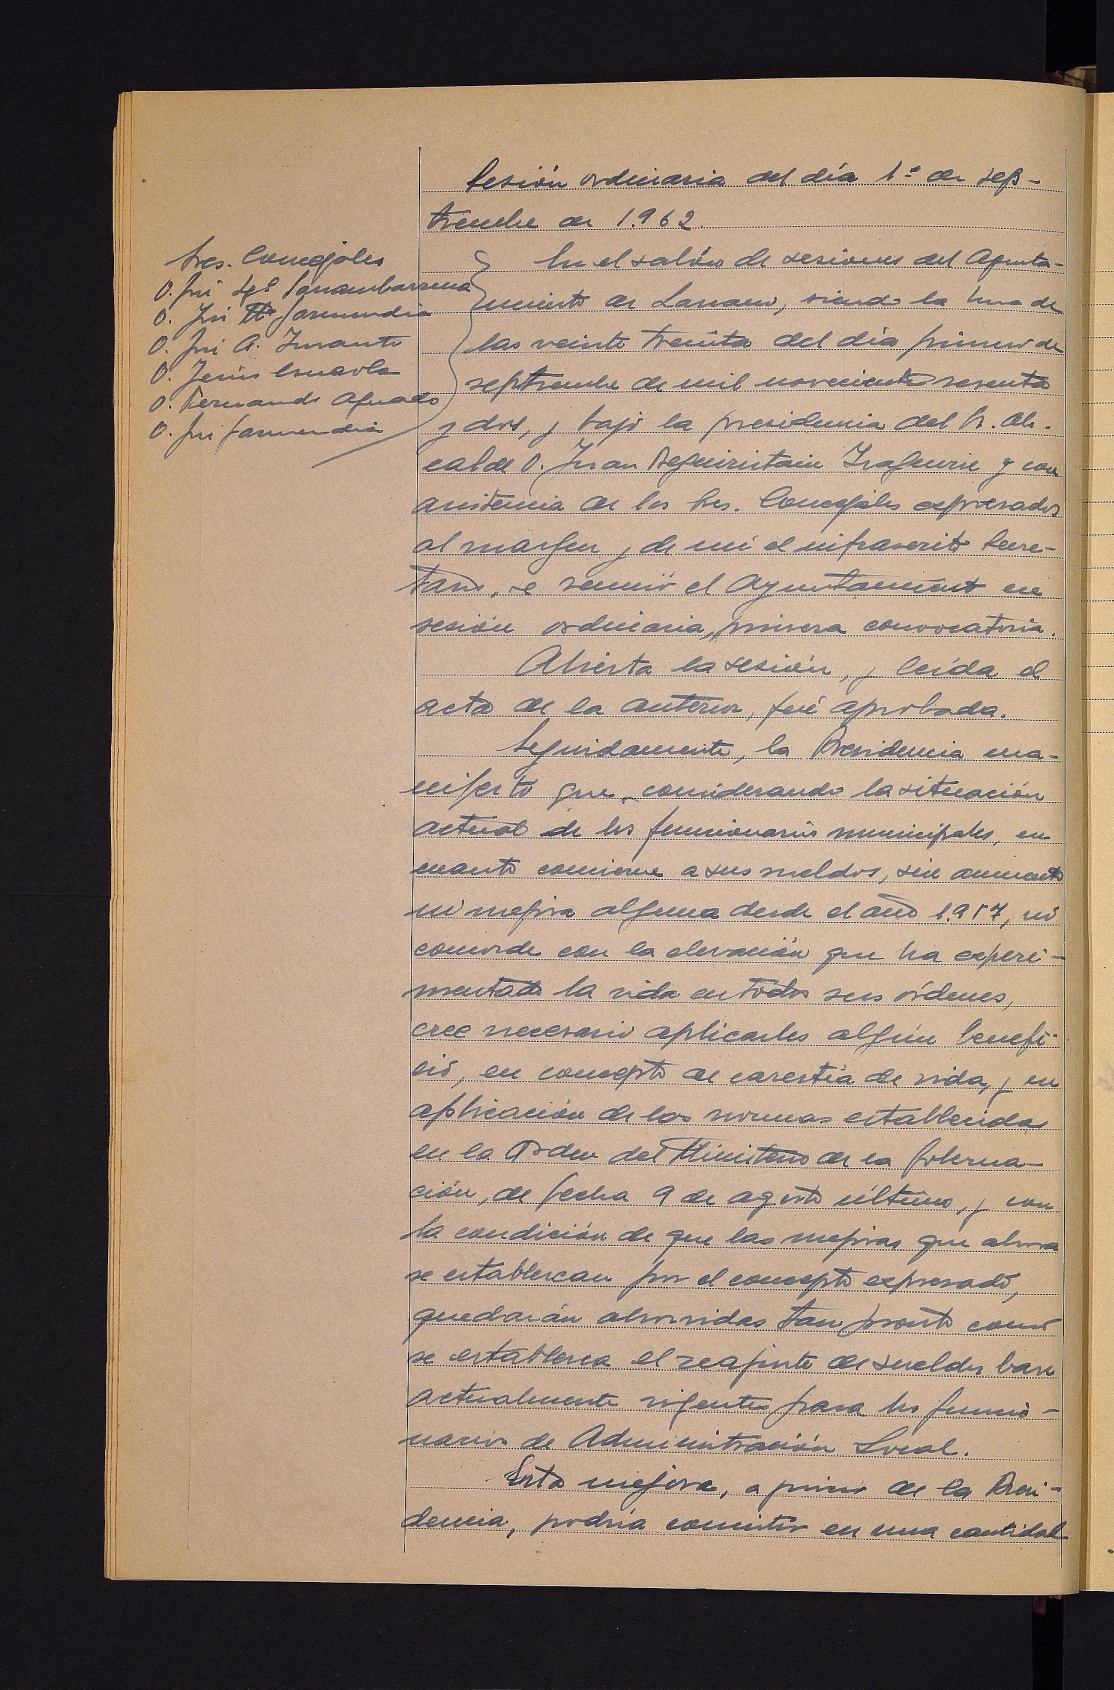 Sesión ordinaria del día 1º de sep-
tiembre de 1.962.
Sres. Concejales
D. José Mª Garmendia
D. José A.
D. Jesús Esnaola
D. Fernando Aguado
D. José Garmendia
En el salón de sesiones del Ayunta-
miento de Lazcano, siendo la hora de
las veinte treinta del día primero de
septiembre de mil novecientos sesenta
y dos, y bajo la presidencia del Sr. Al-
calde D. Juan Aguirrezabal y con
asistencia de los Sres. Concejales expresados
al margen y de mí el infrascrito Secre-
tario, se reunió el Ayuntamiento en
sesión ordinaria, primera convocatoria.
Abierta la sesión, y leída el
acta de la anterior, fué aprobada.
Seguidamente, la Presidencia ma-
nifestó que, considerando la situación
actual de los funcionarios municipales, en
cuanto concierne a sus sueldos, sin aumento
ni mejora alguna desde el año 1.957, no
concorde con la elevación que ha experi-
mentado la vida en todos sus órdenes,
cree necesario aplicarles algún benefi-
cio, en concepto de carestía de vida, y en
aplicación de las normas establecidas
en la Orden del Ministerio de la Goberna-
ción, de fecha 9 de agosto último, y con
la condición de que las mejoras que ahora
se establezcan por el concepto expresado,
quedarán absorvidas tan pronto como
se establezca el reajuste de sueldos base
actualmente vigentes para los funcio-
narios de Administración Local.
Esta mejora, a juicio de la Presi-
dencia, podría consistir en una cantidad